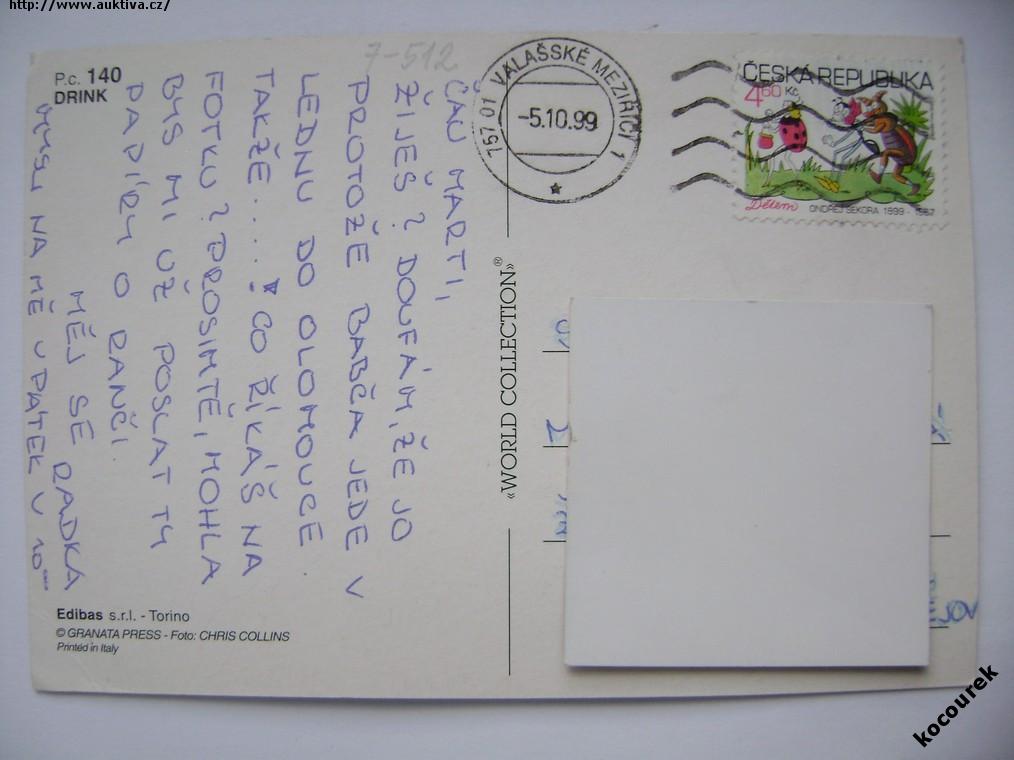 http://www.auktiva.cz/
P.c. 140
DRINK
7-512
ČAU MARTI,
ŽIJEŠ? DOUFÁM, ŽE JO
PROTOŽE BABČA JEDE V
LEDNU DO OLOMOUCE
TAKŽE....! CO ŘÍKÁŠ NA
FOTKU? PROSIMTĚ, MOHLA
BYS MI UŽ POSLAT TY
PAPÍRY O RANČI.
MĚJ SE RADKA
NA MĚ V PÁTEK V 10
Edibas s.r.l. - Torino
© GRANATA PRESS - Foto: CHRIS COLLINS
Printed in Italy
«WORLD COLLECTION»®
757 01 VALAŠSKÉ MEZIŘÍČÍ 1
-5.10.99
ČESKÁ REPUBLIKA
460 Kč
Dětem
ONDŘEJ SEKORA 1899 - 1967
kocourek